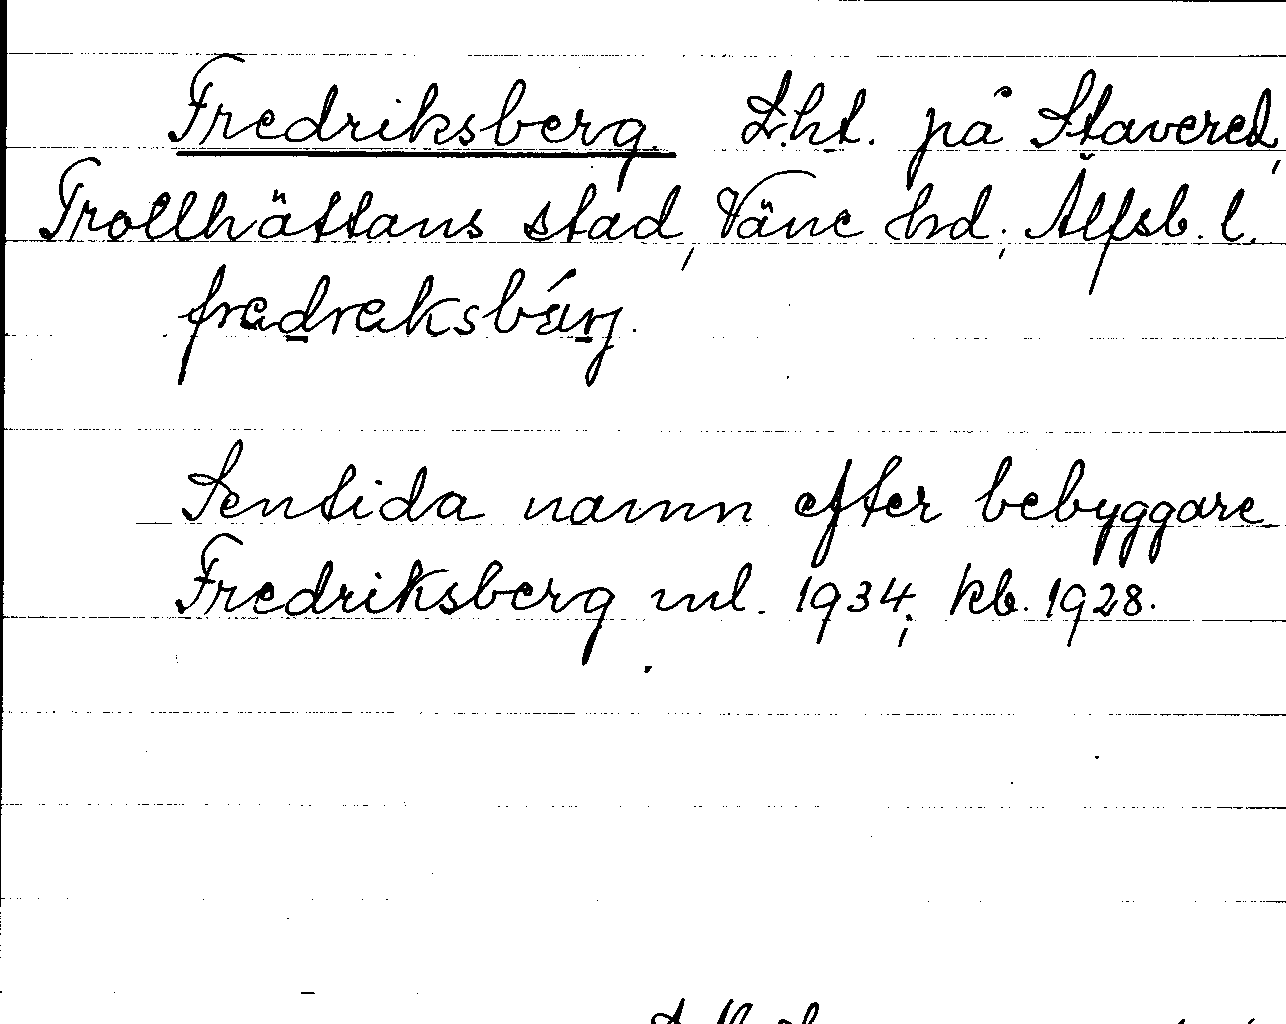 Fredriksberg. Lht. på Stavered,
Trollhättans stad, Väne hd; Älfsb. l.
fredreksbärj.
Sentida namn efter bebyggare
Fredriksberg ml. 1934; kb. 1928.